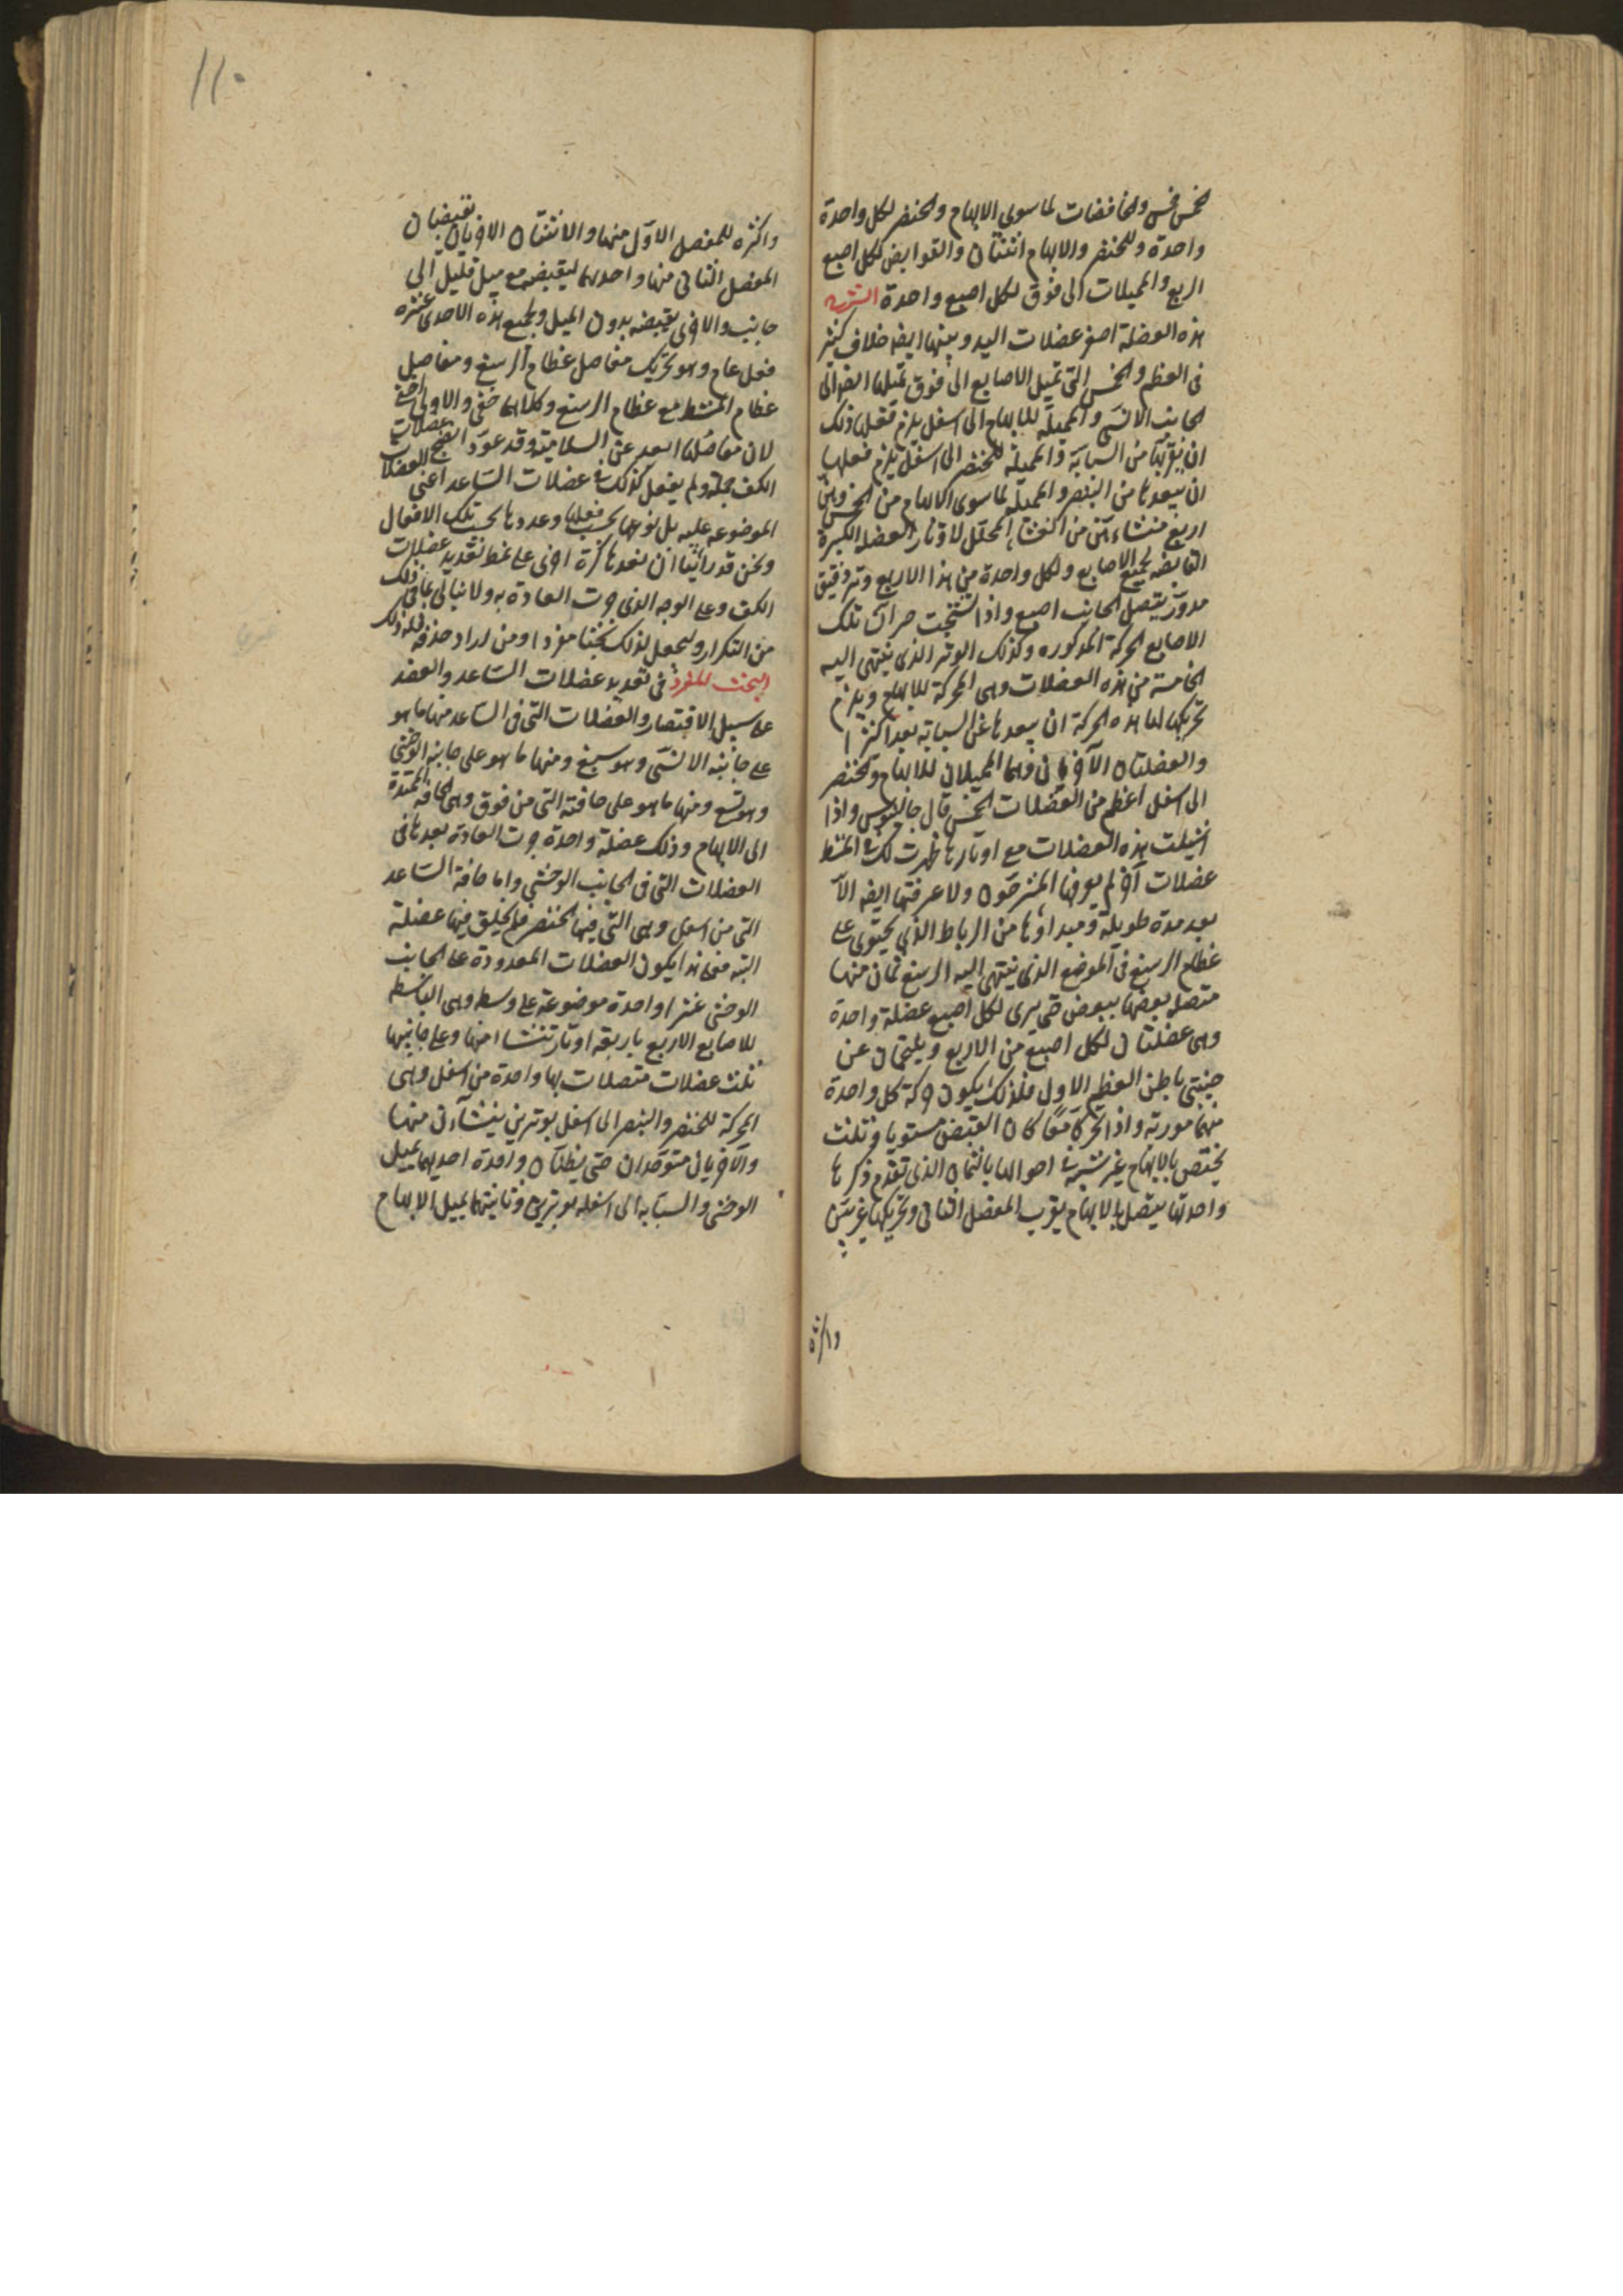 خمس خمس والخافضات لما سوى الابهام والخنصر لكل واحدة
واحدة وللخنصر والابهام اثنتان والقوابض لكل اصبع
اربع والمميلات الى فوق لكل اصبع واحدة الشرح
هذه العضلة اصغر عضلات اليد وبينها ايضا خلاف كثير
فى العظم والخمس التى تميل الاصابع الى فوق تميلها ايضا الى
الجانب الانسى والمميلة للابهام الى اسفل يلزم فعلها ذلك
ان يقربها من السبابة والمميلة للخنصر الى اسفل يلزم فعلها
ان يبعدها من البنصر والمميلة لما سوى الابهام من الخمس وهى
اربع منشاءهن من الغشاء المجلل لاوتار العضلة الكبيرة
القابضه لجميع الاصابع ولكل واحدة من هذا الاربع وتر دقيق
مدور يتصل الجانب اصبع واذا تشنجت حركت تلك
الاصابع الحركة المذكوره وكذلك الوتر الذى ينتهى اليه
الخامسة من هذه العضلات وهى المحركة للابهام ويلزم
تحريكها لها هذه الحركة ان يبعدها عن السبابه بعدا كثيرا
والعضلتان الآخريان وهما المميلان للابهام والخنصر
الى اسفل اعظم من العضلات الخمس قال جالينوس واذا
انشيلت هذه العضلات مع اوتارها ظهرت لك فى المشط
عضلات آخر لم يعرفها المشرحون ولا عرفتها ايضا الا
بعد مدة طويلة ومبداؤها من الرباط الذى يحتوى على
عظام الرسغ فى الموضع الذى ينتهى اليه الرسغ ثمان منها
متصل بعضها ببعض حتى يرى لكل اصبع عضلة واحدة
وهى عضلتان لكل اصبع من الاربع ويلتحمان عن
جنبتى باطن العظم الاول فلذلك يكون حركة كل واحدة
منهما موربة واذا تحركا معا كان القبض مستويا وثلث
يختص بالابهام غير شبيه فى احوالها بالثمان الذى تقدم ذكرها
واحدتها يتصل بالابهام بقرب المفصل الثانى وتحريكها غير بين
واكثره
١١٠
واكثره للمفصل الاول منها والاثنتان الاخريان تقبضان
المفصل الثانى منها واحدهما ليقبضه مع ميل قليل الى
جانب والاخرى يقبضه بدون الميل ولجميع هذه الاحدى عشره
فعل عام وهو تحريك مفاصل عظام الرسغ ومفاصيل
عظام المشط مع عظام الرسغ وكلاهما خفى والاولى اخفى
لان مفاصلها ابعد عن السلاميه وقد عود الشيخ عضلات
الكف جملة ولم يفعل كذلك فى عضلات الساعد اعنى العضلات
الموضوعه عليه بل نوعها بحسب فعلها وعددها بحسب تلك الافعال
ونحن قد راينا ان نعدها كرة اخرى على نمط تعديد عضلات
الكف وعلى الوجه الذى جرت العادة به ولا نبالى بما فى ذلك
من التكرار ولنجعل لذلك بحثا مفردا ومن اراد حذفه فله ذلك
البحث المفرد فى تعديد عضلات الساعد والعضد
على سبيل الاقتصار والعضلات التى فى الساعد منها ما هو
على جانبه الانسى وهو سبع ومنها ما هو على جانبه الوحشى
وهو تسع ومنها ما هو على حافته التى من فوق وهى الحافه الممتدة
الى الابهام وذلك عضلة واحدة جرت العادة بعدها فى
العضلات التى فى الجانب الوحشى واما حافة الساعد
التى من اسفل وهى التى فيها الخنصر فلم يخلق فيها عضلة
البته فعلى هذا يكون العضلات المعدودة على الجانب
الوحشى عشرا واحدة موضوعة على وسطه وهى الباسطه
للاصابع الاربع باربعة اوتار تنشا منها وعلى جانبيها
ثلث عضلات متصلات بها واحدة من اسفل وهى
المحركة للخنصر والبنصر الى اسفل بوترين ينشآن منها
والآخريان متوحدان حتى يظنان واحدة احديهما تميل
الوسطى والسبابه الى اسفله بوترين وثانيتهما يميل الابهام